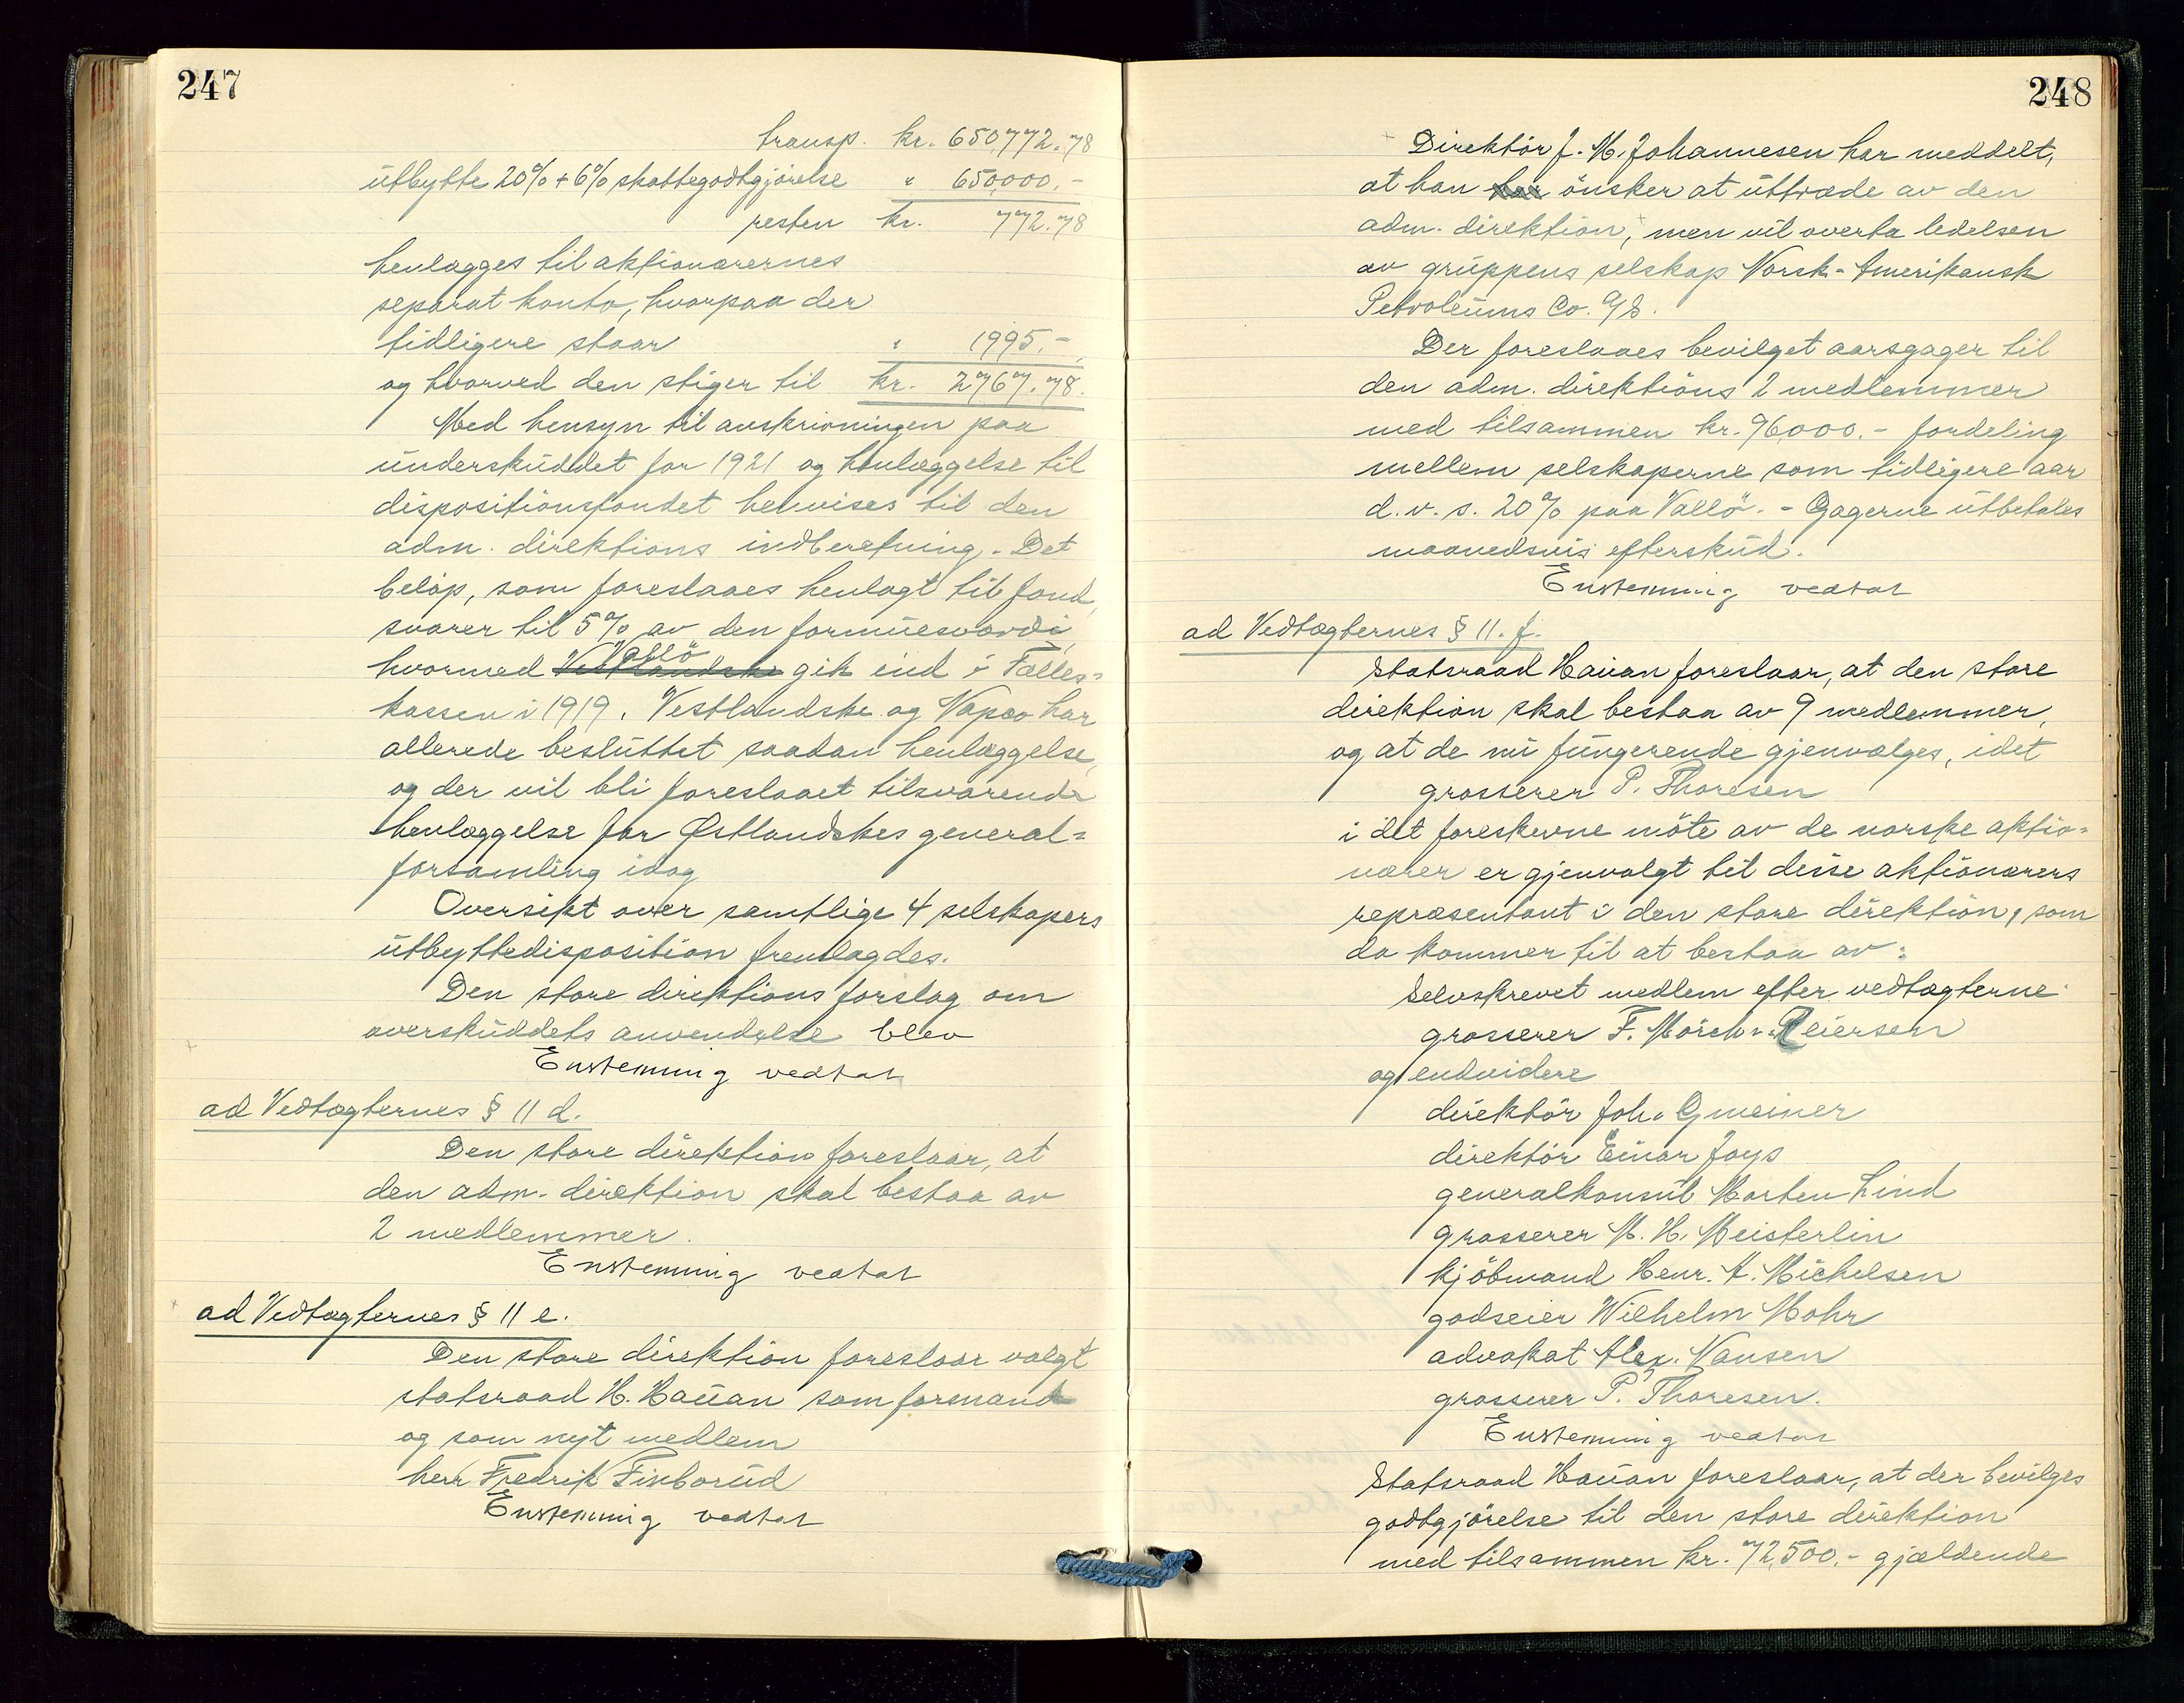 247
transp. kr. 650,772.78
utbytte 20% + 6% skattegodtgjörelse " 650,000.-
resten kr. 772.78
henlægges til aktionærernes
separat konto, hvorpaa der
tidligere staar " 1995.-
og hvorved den stiger til kr. 2767.78.
Med hensyn til avskrivningen paa
underskuddet for 1921 og henlæggelse til
dispositionsfondet henvises til den
adm. direktions indberetning. Det
belöp, som foreslaaes henlagt til fond,
svarer til 5% av den formuesværdi
hvormed Vestlandske Vallö gik ind i Fælles-
kassen i 1919. Vestlandske og Napco har
allerede besluttet saadan henlæggelse,
og der vil bli foreslaaet tilsvarende
henlæggelse for Østlandskes general-
forsamling idag
Oversikt over samtlige 4 selskapers
utbyttedisposition fremlagdes.
Den store direktions forslag om
overskuddets anvendelse blev
Enstemmig vedtat
ad Vedtægternes § 11 d.
Den store direktion foreslaar, at
den adm. direktion skal bestaa av
2 medlemmer.
Enstemmig vedtat
ad Vedtægternes § 11 e.
Den store direktion foreslaar valgt
statsraad H. Hauan som formand
og som nyt medlem
herr Fredrik Finborud
Enstemmig vedtat
248
Direktör J. M. Johannesen har meddelt,
at han har önsker at uttræde av den
adm. direktion, men vil overta ledelsen
av gruppens selskap Norsk-Amerikansk
Petroleums Co. A/S.
Der foreslaaes bevilget aarsgager til
den adm. direktions 2 medlemmer
med tilsammen kr. 96000.- fordeling
mellem selskaperne som tidligere aar
d.v.s. 20% paa Vallö. - Gagerne utbetales
maanedsvis efterskud.
Enstemmig vedtat
ad Vedtægternes § 11. f.
Statsraad Hauan foreslaar, at den store
direktion skal bestaa av 9 medlemmer,
og at de nu fungerende gjenvælges, idet
grosserer P. Thoresen
i det foreskrevne möte av de norske aktio-
nærer er gjenvalgt til disse aktionærers
repræsentant i den store direktion, som
da kommer til at bestaa av:
Selvskrevet medlem efter vedtægterne
grosserer F. Mörch-Reiersen
og endvidere
direktör Joh. Gmeiner
direktör Einar Joys
generalkonsul Morten Lind
grosserer M. H. Meisterlin
kjöbmand Henr. A. Michelsen
godseier Wilhelm Mohr
advokat Alex. Nansen
grosserer P. Thoresen.
Enstemmig vedtat
Statsraad Hauan foreslaar, at der bevilges
godtgjörelse til den store direktion
med tilsammen kr. 72,500.- gjældende